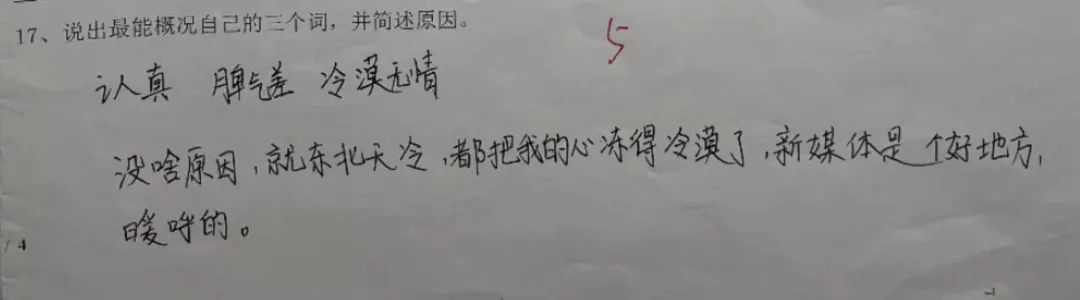 17、说出最能概况自己的三个词，并简述原因。
5
认真 脾气差 冷漠无情
没啥原因，就东北天冷，都把我的心冻得冷漠了，新媒体是个好地方，
暖呼的。
/ 4